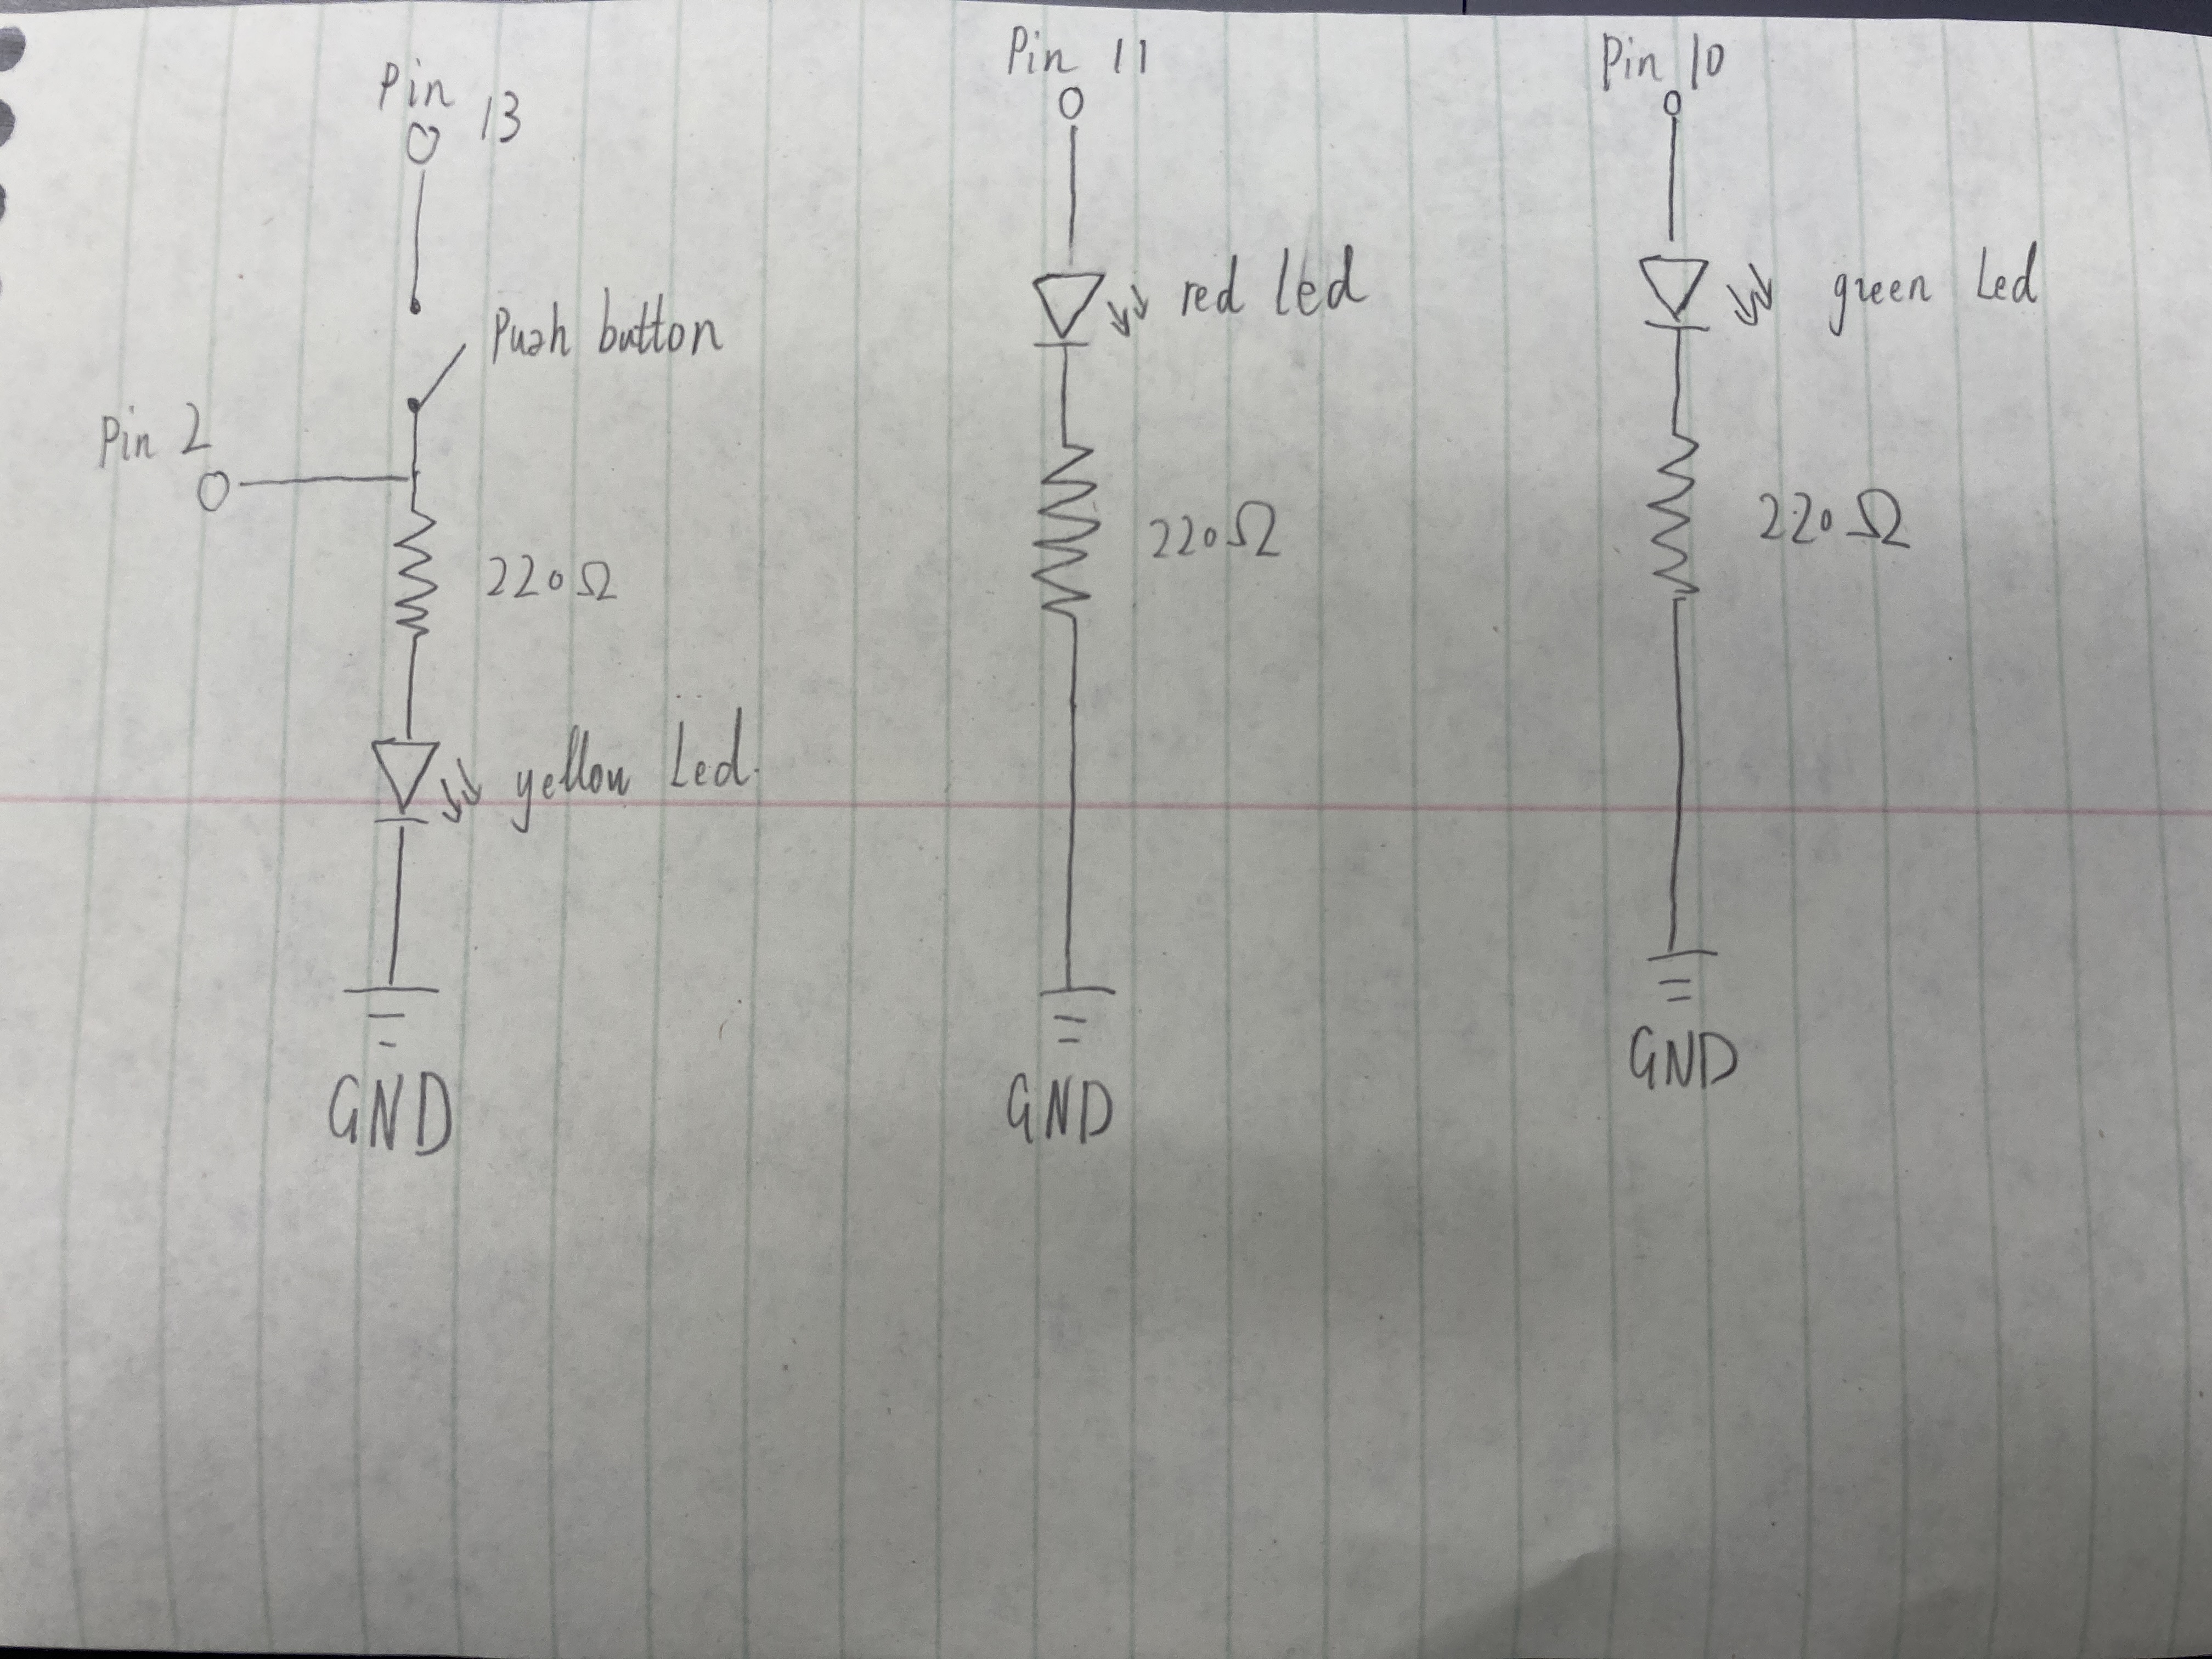 Pin 13
Push button
Pin 2
220Ω
yellow Led.
GND
Pin 11
red led
220Ω
GND
Pin 10
green Led
220Ω
GND